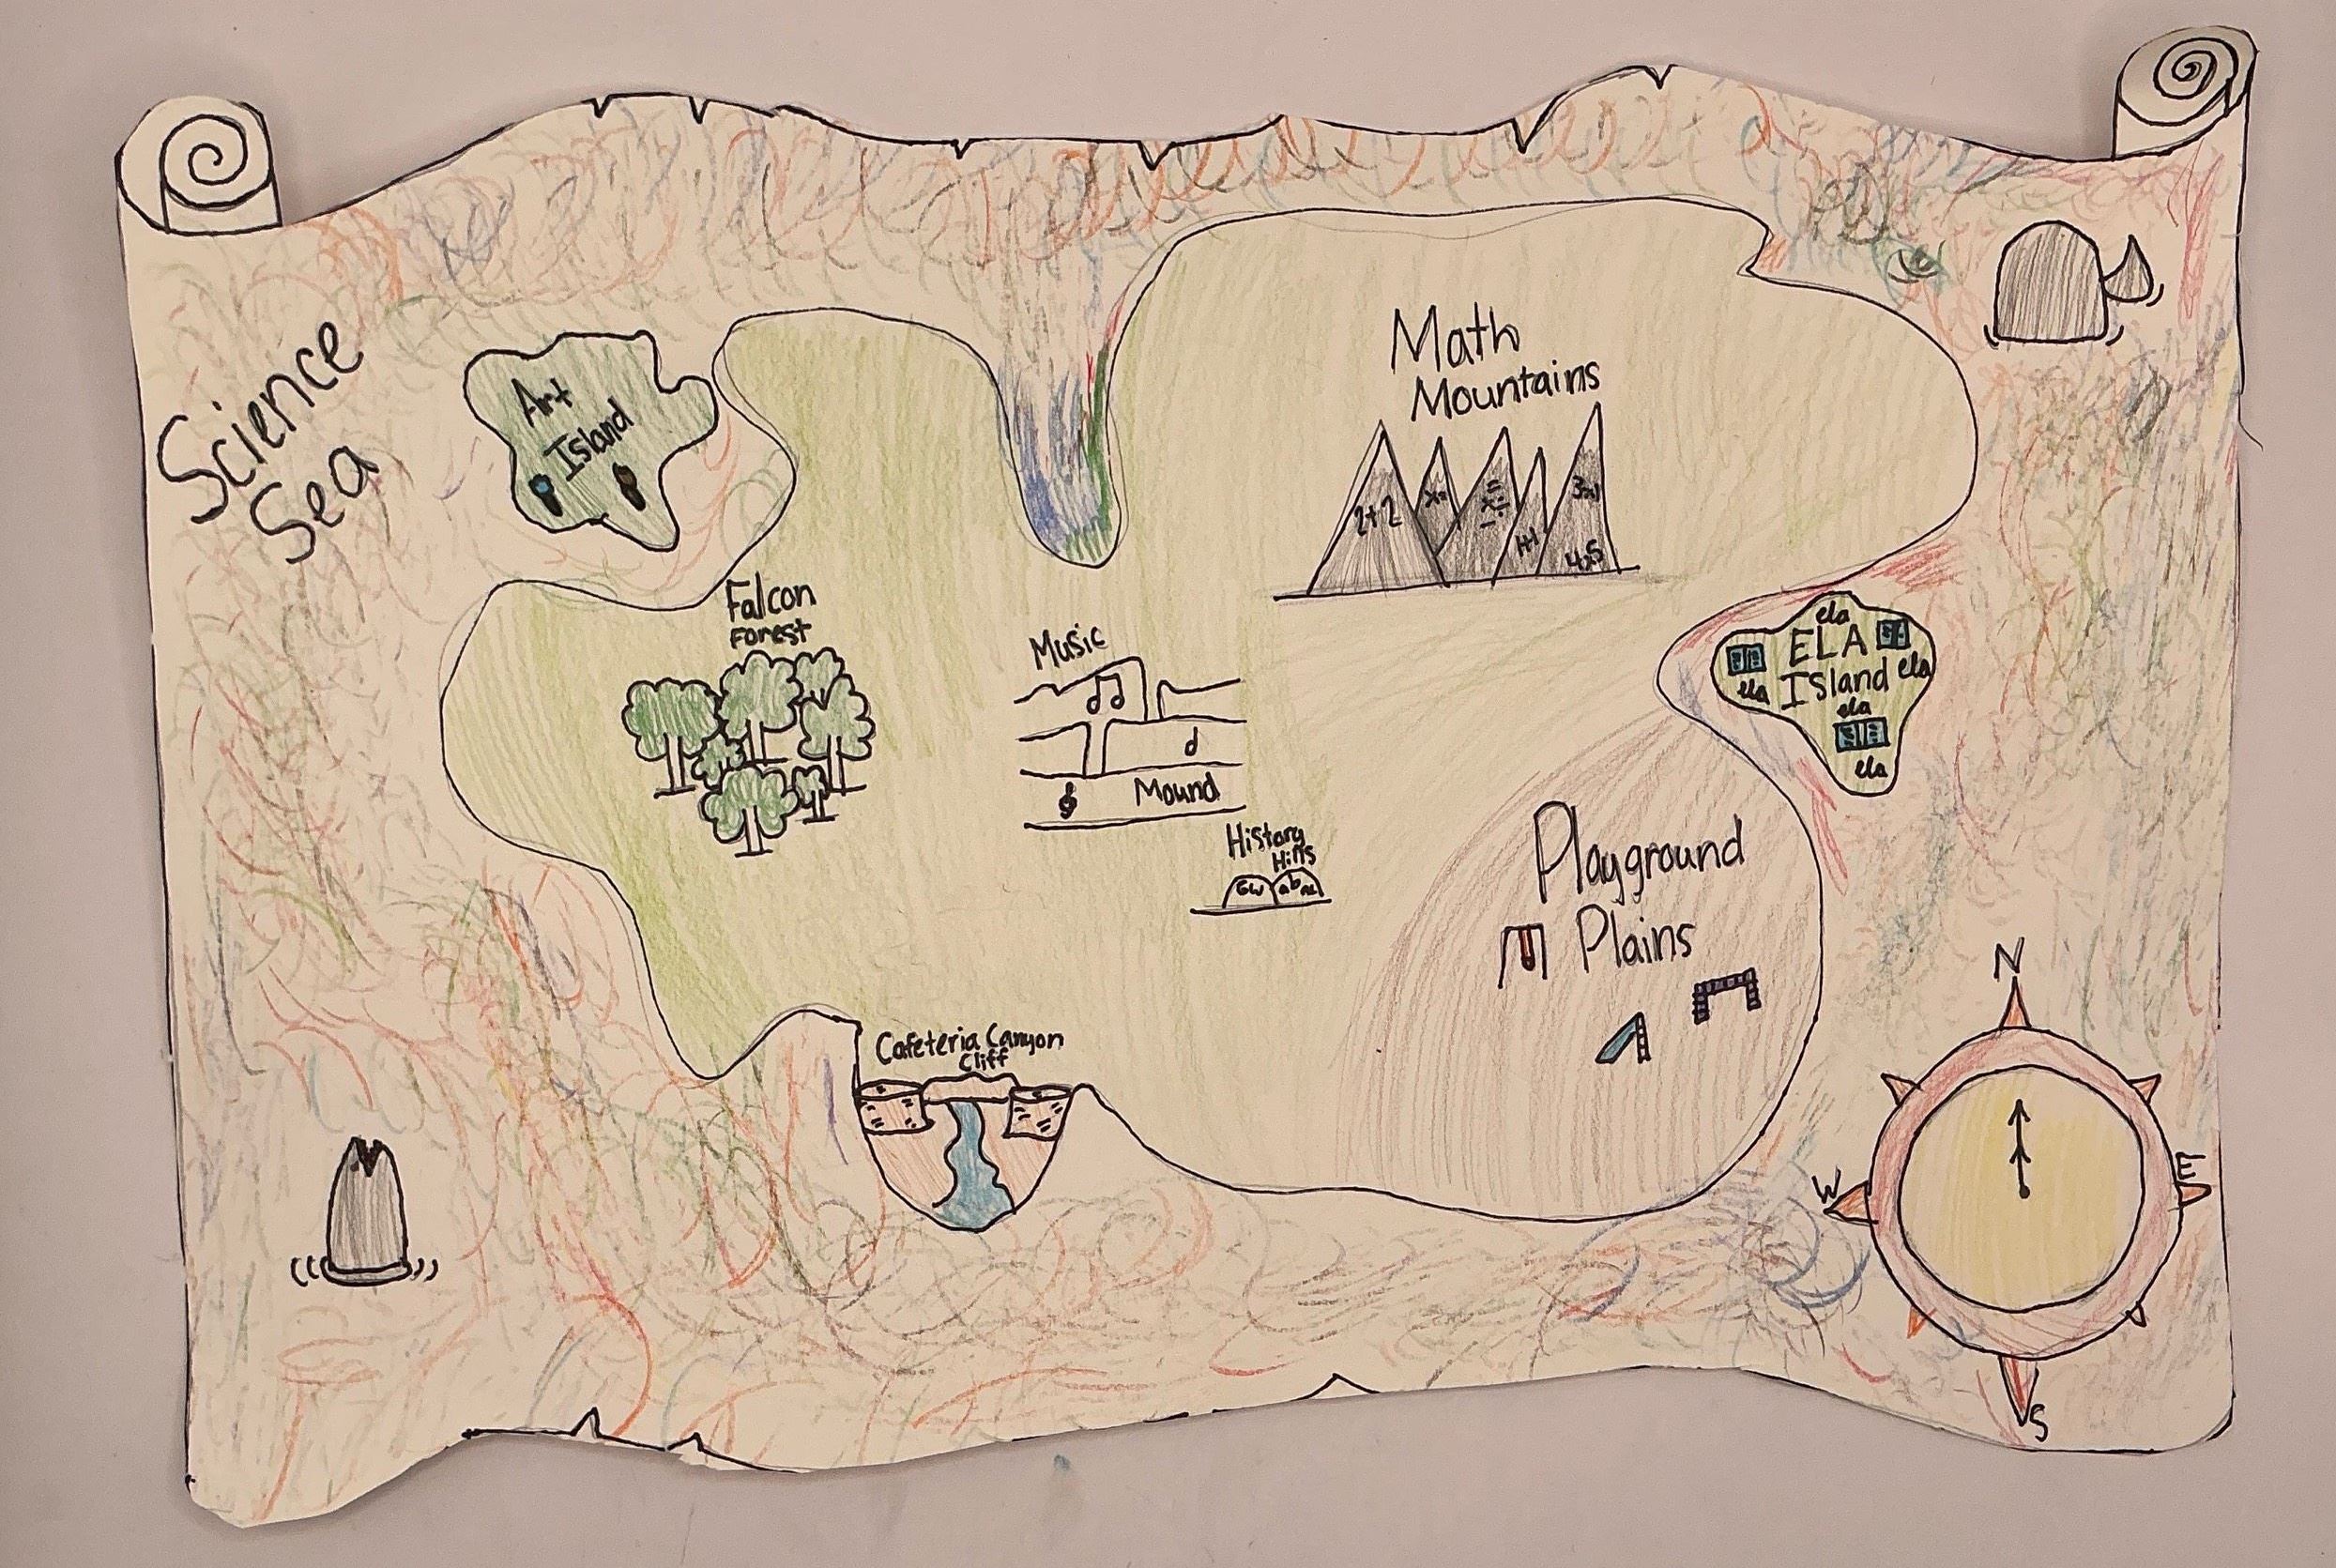 Science
Sea
Art
Island
Math
Mountains
2+2
x=
1+1
4x5
Falcon
Forest
Music
Mound
History
Hills
GW
ela
ELA
ela
Island
ela
ela
ela
Playground
Plains
Cafeteria Canyon
Cliff
N
W
E
S